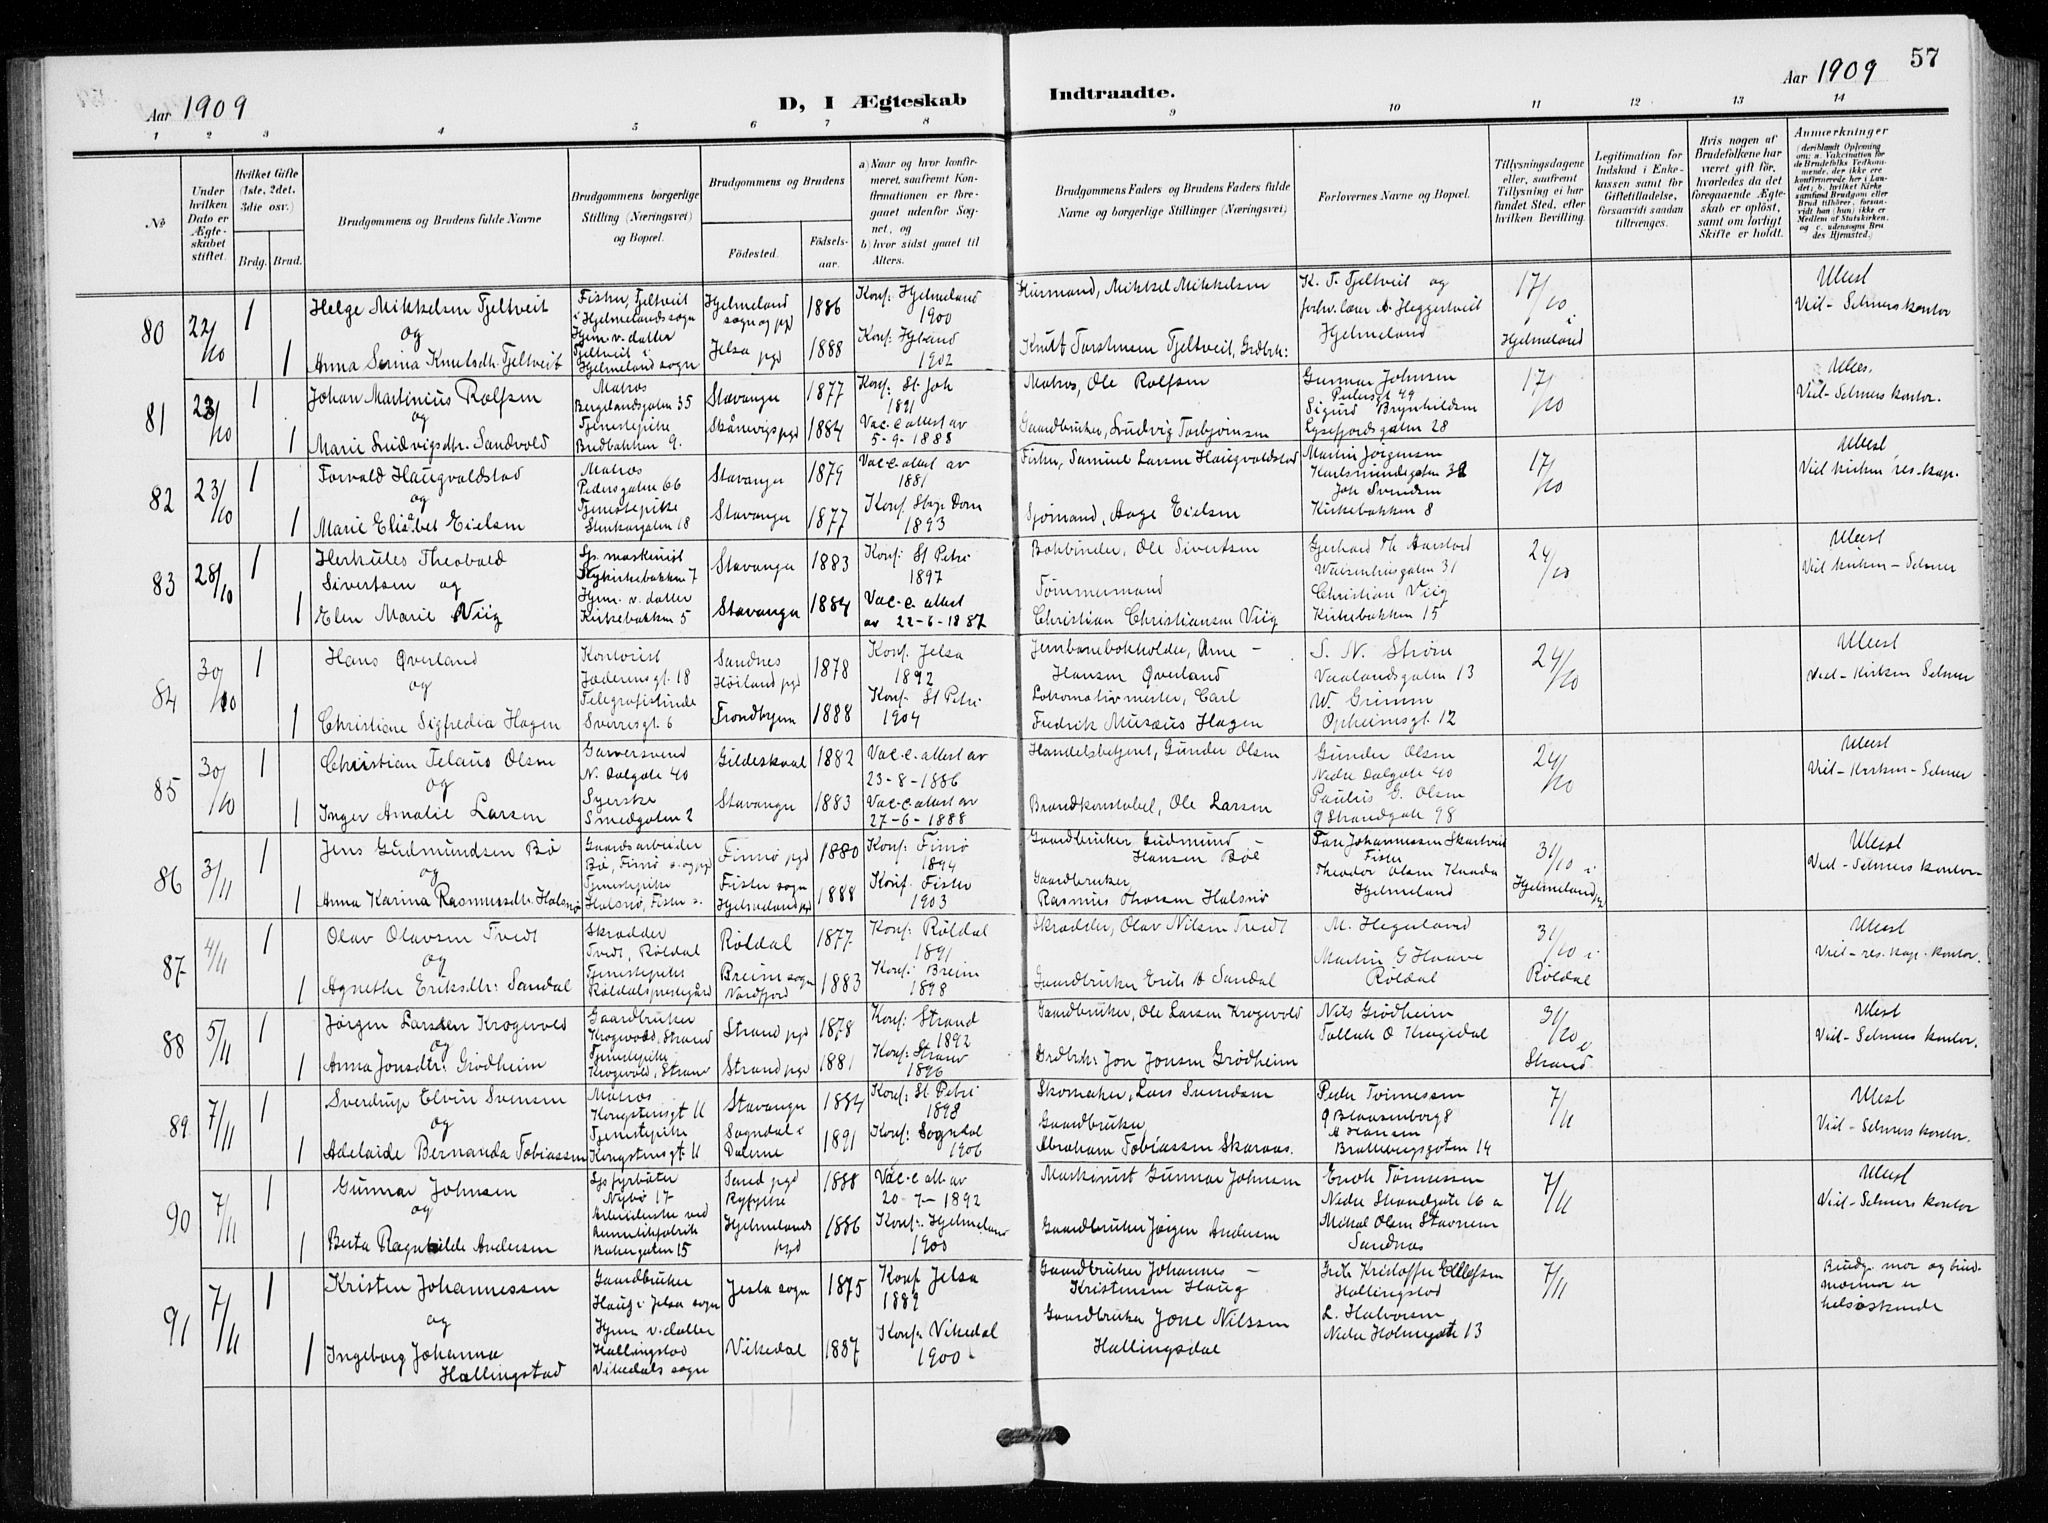 57
Aar 1909
D, I Ægteskab Indtraadte.
Aar 1909
1 2 3 4 5 6 7 8 9 10 11 12 13 14
№
Under hvilken Dato er Ægteskabet stiftet.
Hvilket Gifte (1ste, 2det, 3die osv.)
Brdg. Brud.
Brudgommens og Brudens fulde Navne
Brudgommens borgerlige Stilling (Næringsvei) og Bopæl.
Brudgommens og Brudens
Fødested.
Fødselsaar.
a) Naar og hvor konfirmeret, saafremt Konfirmationen er foregaaet udenfor Sognet, og
b) hvor sidst gaaet til Alters.
Brudgommens Faders og Brudens Faders fulde Navne og borgerlige Stillinger (Næringsvei)
Forlovernes Navne og Bopæl.
Tillysningsdagene eller, saafremt Tillysning ei har fundet Sted, efter hvilken Bevilling.
Legitimation for Indskud i Enkekassen samt for Giftetilladelse, forsaavidt saadan tiltrænges.
Hvis nogen af Brudefolkene har været gift før, hvorledes da det foregaaende Ægteskab er opløst, samt om lovligt Skifte er holdt.
Anmerkninger
80 22/10 1
Helge Mikkelsen Tjeltveit
Fisker, Tjeltveit
i Hjelmelandssogn
Hjelmeland
sogn og pgd
1886
Konf: Hjelmeland
1900
Husmand, Mikkel Mikkelsen
K. T. Tjeltveit og
A. Heggertveit
Hjelmeland
17/10 i
Hjelmeland
Viet - Selmers kontor
og
1
Anna Serina Knutsdtr. Tjeltveit
Hjm. v. datter
Tjeltveit i
Hjelmeland sogn
Jelsa pgd
1888
1902
Knut Torstensen Tjeltveit, Grdbrk:
81 23/10 1
Johan Martinius Rolfsen
Matros
Bergelandsgaten 35
Stavanger
1877
Konf: St. Joh
1891
Matros, Ole Rolfsen
Gunnar Johnsen
Pedersgt 49
17/10
Viet - Selmers kontor.
og
1
Marie Ludvigsdtr. Sandvold
Tjenestepike
Bredbakken 9.
Skånevigs pgd
1884
Vac. c. attest av
5-9-1888
Gaardbruker, Ludvig Torbjørnsen
Sigurd Brynhildsen
Lysefjordsgaten 28
82 23/10 1
Torvald Haugvaldstad
Matros
Pedersgaten 66
Stavanger
1879
Vac. c. attest av
1881
Fisker, Samuel Larsen Haugvaldstad
Martin Jørgensen
17/10
Viet kirken res. kap.
og
1
Marie Elisabet Eielsen
Tjenestepike
Stenkargaten 18
Stavanger
1877
Dom
1893
Sjømand, Aage Eielsen
Joh Svendsen
Kirkebakken 8
83 28/10 1
Herkules Theobald
Sivertsen og
maskinist
Nykirkebakken 7
Stavanger
1883
Konf: St Petri
1897
Bokbinder, Ole Sivertsen
Gjerhard Th. Aarstad
Waisenhusgaten 31
24/10
Viet kirken - Selmer
1
Elen Marie Viig
Hjm. v. datter
Kirkebakken 5
Stavanger
1884
Vac. c. attest
av 22-6-1887
Tømmermand
Christian Christiansen Viig
Christian Viig
Kirkebakken 15
84 30/10 1
Hans Øverland
og
Kontorist
Jæderensgt. 18
Sandnes
Høiland pgd
1878
Konf. Jelsa
1892
Jernbanebokholder, Arne -
Hansen Øverland
S. N. Strøm
Vaalandsgaten 13
24/10
Viet - Kirken Selmer
1
Christiane Sigfredia Hagen
Telegrafistinde
Sverresgt. 6
Trondhjem
1888
Konf. St Petri
1904
Lokomotivmester, Carl
Fredrik Musæus Hagen
W. Grimm
Opheimsgt. 12
85 30/10 1
Christian Telaus Olsen
og
Garversvend
N. Dalgate 40
Gildeskaal
1882
Vac. c. attest av
23-8-1886
Handelsbetjent, Gunder Olsen
Gunder Olsen
Nedre Dalgate 40
24/10
Viet - Kirken - Selmer
1
Inger Amalie Larsen
Syerske
Smedgaten 2
Stavanger
1883
Vac. c. attest av
27-6-1888
Brandkonstabel, Ole Larsen
Paulus G. Olsen
Ø Strandgate 98
86 3/11 1
Jens Gudmundsen Bø
og
Gaardsarbeider
Bø, Finnø s. og pgd
Finnø pgd
1880
Konf: Finnø
1894
Gaardbruker Gudmund
Hansen Bøe
Tore Johannessen Skartveit
Fister
31/10 i
Hjelmeland
Viet - Selmers kontor
1
Anna Karina Rasmussdtr. Halsnø
Tjenestepike
Halsnø, Fister s.
Fister sogn
Hjelmeland pgd
1888
Konf. Fister
1903
Gaardbruker
Rasmus Thorsen Halsnø
Theodor Olsen Kaada
Hjelmeland
87 4/11 1
Olav Olavsen Tvedt
og
Skrædder
Tvedt, Røldal
Røldal
1877
Konf: Røldal
1891
Skrædder, Olav Nilsen Tvedt
M. Hegerland
31/10 i
Røldal
Viet - res. kap. kontor.
1
Agnethe Eriksdtr: Sandal
Tjenestepike
Røldalsprestegård
Breim sogn
Nordfjord
1883
Konf: Breim
1898
Gaardbruker Erik Sandal
Martin G Haave
Røldal
88 5/11 1
Jørgen Larsen Krogevold
og
Gaardbruker
Krogevold, Strand
Strand pgd
1878
Konf: Strand
1892
Gaardbruker, Ole Larsen Krogevold
Nils Grødheim
31/10 i
Strand
Viet - Selmers kontor.
1
Anna Jonsdtr. Grødheim
Tjenestepike
Krogevold, Strand
Strand pgd
1881
Konf: Strand
1896
Grdbrk: Jon Jonsen Grødheim
Tollak O Krogedal
89 7/11 1
Sverdrup Elvin Svensen
og
Matros
Kongstensgt 11
Stavanger
1884
Konf: St Petri
1898
Skomaker, Lars Svendsen
Peder Tønnessen
Ø Blaasenborg 8
7/11
Viet - Selmers kontor.
1
Adelaide Bernanda Tobiassen
Tjenestepike
Kongstensgt 11
Sogndal i
Dalerne
1891
Konf: Sogndal
1906
Gaardbruker
Abraham Tobiassen Skaraas.
A Hansen
Brattebergsgaten 14
90 7/11 1
Gunnar Johnsen
og
fyrbøter
Nybø 17
Sand pgd
Ryfylke
1888
Vac. c. att. av
20-7-1892
Maskinist Gunnar Johnsen
Enok Tønnessen
Nedre Strandgate 16 a
7/11
Viet - Selmers kontor
1
Berta Ragnhilde Andersen
Arbeiderske ved
hermetikfabrik
Bakergaten 15
Hjelmelands
pgd
1886
Konf: Hjelmeland
1900
Gaardbruker Jørgen Andersen
Mikal Olsen Stavnem
Sandnæs
91 7/11 1
Kristen Johannessen
og
Gaardbruker
Haug i Jelsa sogn
Jesla sogn
1875
Konf. Jelsa
1889
Gaardbruker Johannes -
Kristensen Haug
Kristoffer Ellefsen
Hallingstad
7/11
Brudg. mor og brud.
mormor er
helsøskende
1
Ingeborg Johanna
Hallingstad
Hjm v. datter
Hallingstad
Vikedals sogn
Vikedal
1887
Konf: Vikedal
1900
Gaardbruker Jone Nilssen
Hallingsdal
L. Halvorsen
Nedre Holmegate 13